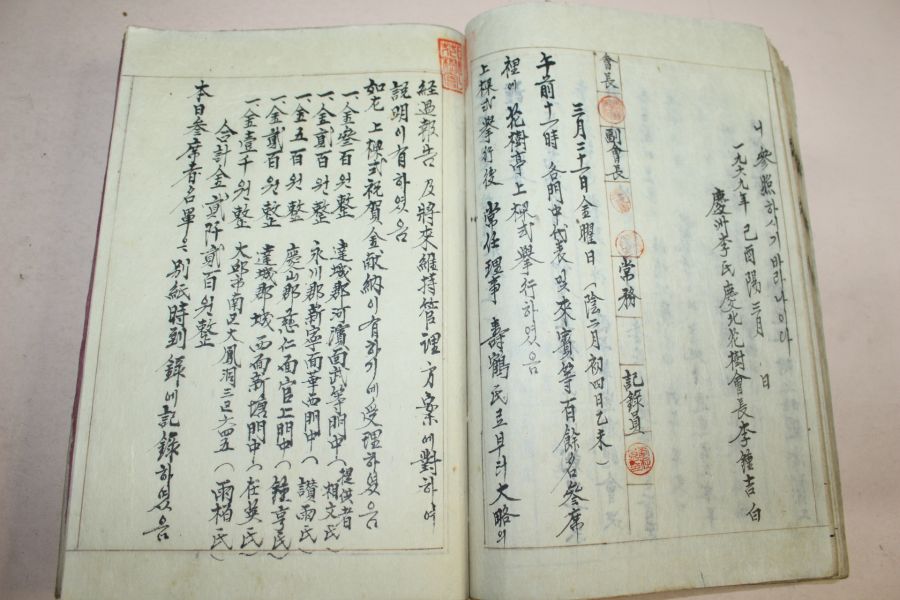 니 參照하시기 바라나이다
一九六九年 己酉陽三月 日
慶州李氏慶北花樹會長李鍾吉 白
會長 副會長 常務 記錄員
三月二十一日金曜日(陰二月初四日乙未)
午前十一時 各門中代表 及 來賓等百餘名參席
裡에 花樹亭上樑式擧行하였음
上樑式擧行後 常任理事 壽鶴氏로부터 大略의
經過報告 及 將來維持管理方案에 對하여
說明이 有하였음
如左 上樑式祝賀金獻納이 有하기에 受理하였음
一、金參百원整 達城郡河濱面武等門中(提供者 相文氏)
一、金貳百원整 永川郡新寧面華西門中(讚雨氏)
一、金五百원整 慶山郡慈仁面官上門中(鍾亨氏)
一、金貳百원整 達城郡城西面新塘門中(在英氏)
一、金壹千원整 大邱市南区大鳳洞三区六四五(雨栢氏)
合計金貳阡貳百원整
本日參席者名單은 別紙時到錄에 記錄하였음